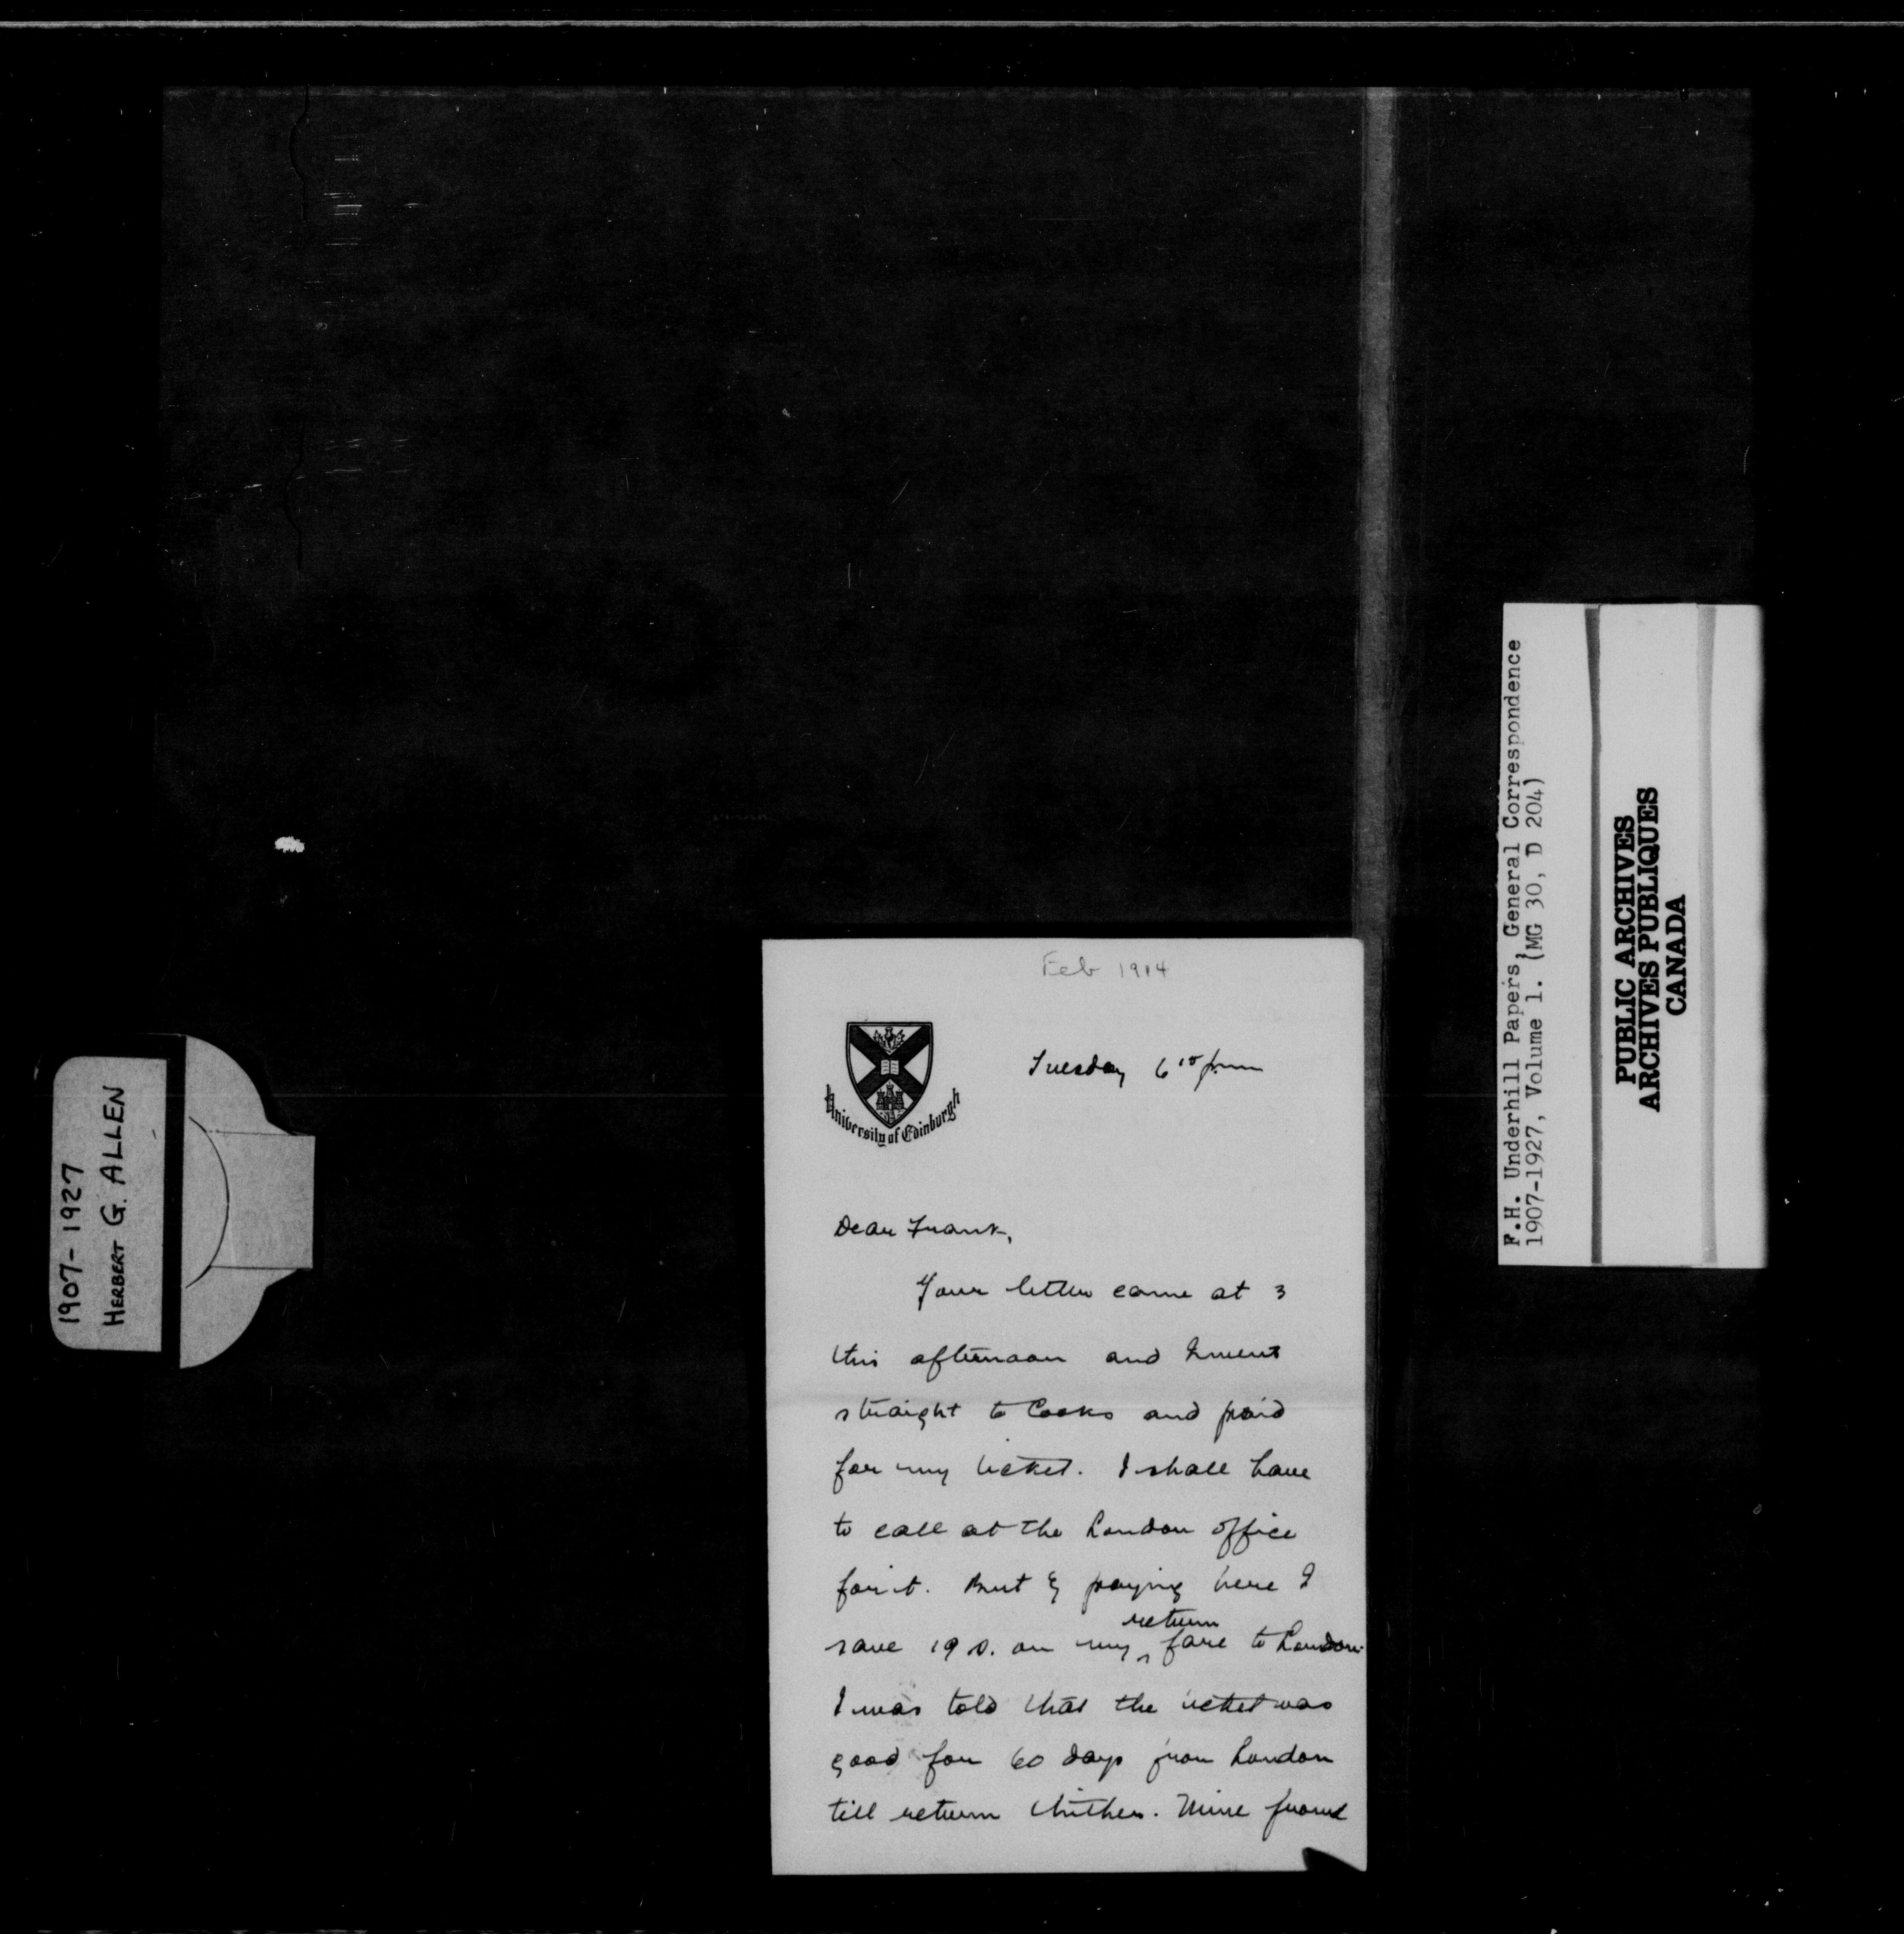 Feb 1914
University of Edinburgh
Tuesday 6 15 p.m
Dear Frank,
Your letter came at 3
this afternoon and I went
straight to Cooks and paid
for my ticket. I shall have
to call at the London office
for it. But by paying here I
save 19 s. on my return fare to London.
I was told that the ticket was
good for 60 days from London
till return thither. Mine from
1907-1927
HERBERT G. ALLEN
F.H. Underhill Papers, General Correspondence
1907-1927, Volume 1. (MG 30, D 204)
PUBLIC ARCHIVES
ARCHIVES PUBLIQUES
CANADA